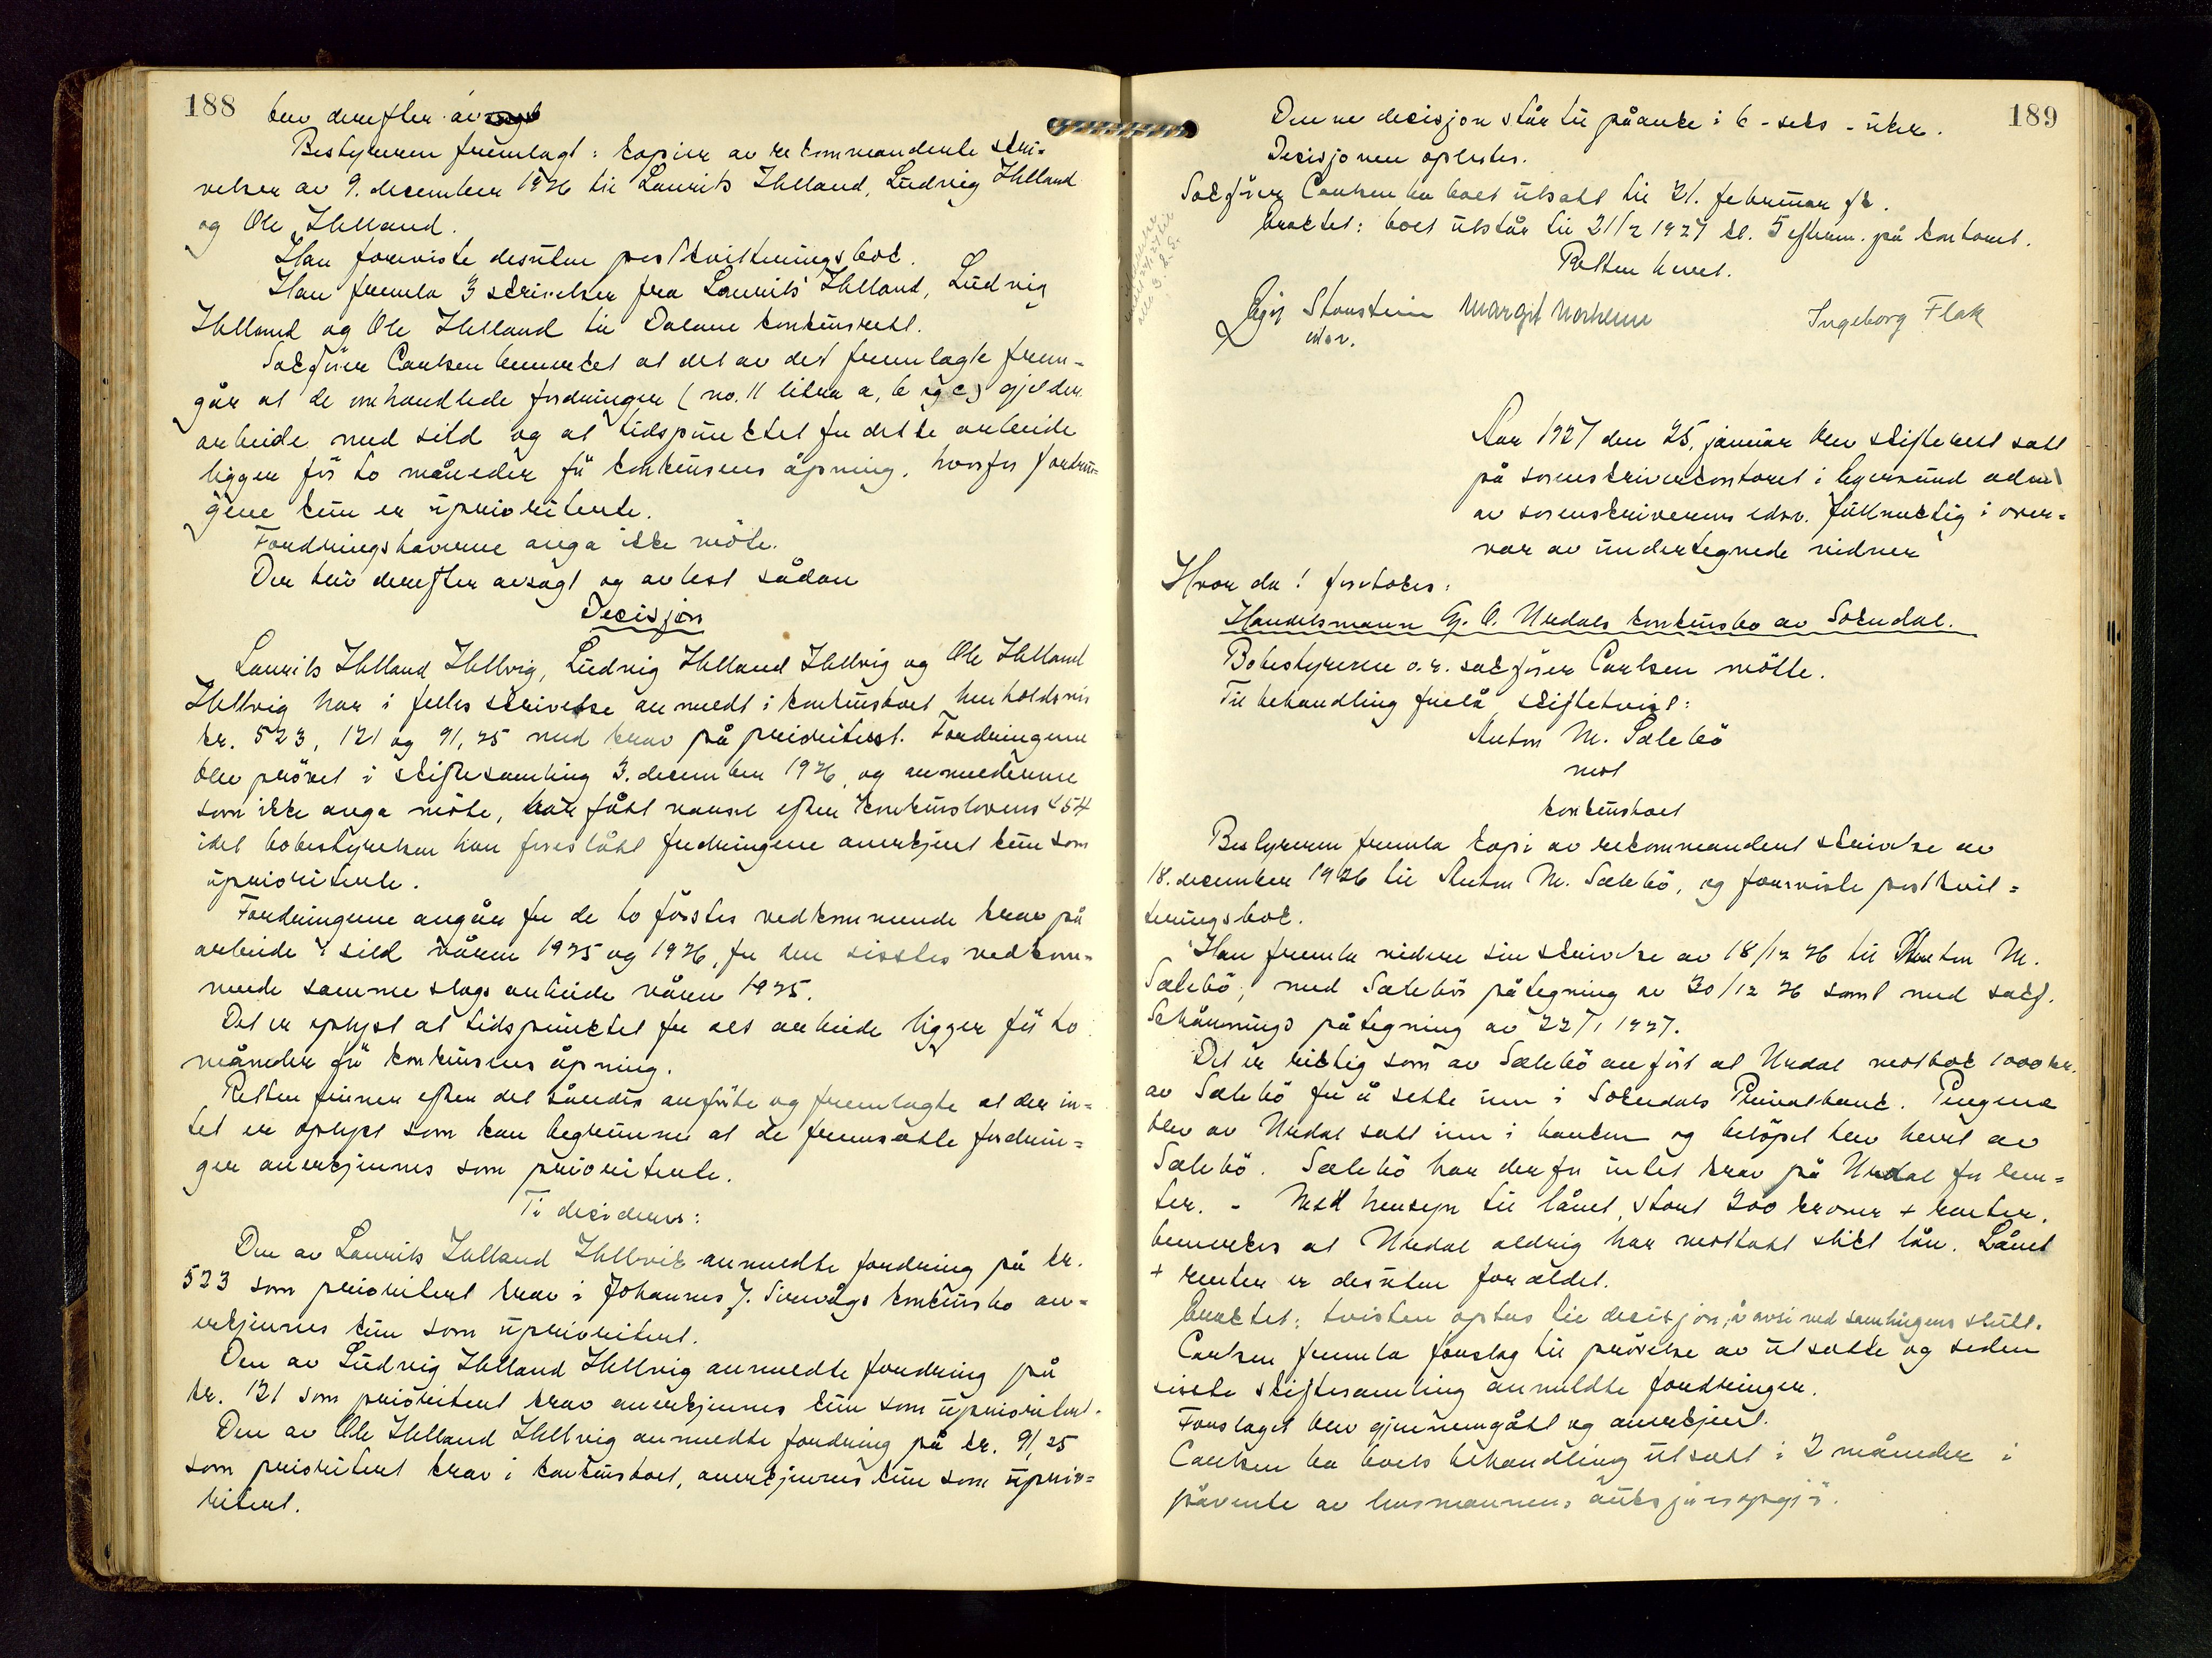 188
blev derefter av
Bestyreren fremlagt: kopier av rekommanderte skri-
velser av 9. december 1926 til Laurits Helland, Ludvig Helland
og Ole Helland.
Han foreviste desuten postkvitteringsbok.
Han fremla 3 skrivelser fra Laurits Helland, Ludvig
Helland og Ole Helland til Dalane konkursrett.
Sakfører Carlsen bemerket at det av det fremlagte frem-
går at de omhandlede fordringer (no. 11 litra a, b og c) gjelder
arbeide med sild og at tidspunktet for dette arbeide
ligger før to måneder før konkursens åpning, hvorfor fordrin-
gene kun er uprioriterte.
Fordringshaverne anga ikke møte.
Der blev derefter avsagt og avlest sådan
Decisjon
Laurits Helland Hellvig, Ludvig Helland Hellvig og Ole Helland
Hellvig har i felles skrivelse anmeldt i konkursboet henholdsvis
kr. 523, 121 og 91,25 med krav på prioritet. Fordringerne
blev prøvet i skiftesamling 3. december 1926, og anmelderne
som ikke anga møte, har fått varsel efter konkurslovens § 54
idet bobestyrelsen har foreslått fordringene anerkjent kun som
uprioriterte.
Fordringene angår for de to førstes vedkommende krav på
arbeide i sild våren 1925 og 1926, for den sisstes vedkom-
mende samme slags arbeide våren 1925.
Det er oplyst at tidspunktet for alt arbeide ligger før to
måneder før konkursens åpning.
Retten finner efter det således anførte og fremlagte at der in-
tet er oplyst som kan begrunne at de fremsatte fordrin-
ger anerkjennes som prioriterte.
Ti decideres:
Den av Laurits Helland Hellvik anmeldte fordring på kr.
523 som prioritert krav i Johannes J. Sirevågs konkursbo an-
erkjennes kun som uprioritert.
Den av Ludvig Helland Hellvig anmeldte fordring på
kr. 121 som prioritert krav anerkjennes kun som uprioritert.
Den av Ole Helland Hellvig anmeldte fordring på kr. 91,25
som prioritert krav i konkursboet, anerkjennes kun som uprio-
ritert.
189
Denne decisjon står til påanke i 6 - seks - uker.
Decisjonen oplestes.
Sakfører Carlsen ba boet utsatt til 21. februar fk.
Eraktet: boet utstår til 21/2 1927 kl. 5 efterm. på kontoret.
Retten hevet.
Stousten Margit Ingeborg Flak
edsv.
Aar 1927 den 25. januar blev skifterett satt
på sorenskriverkontoret i Egersund adm.
av sorenskriverens edsv. fullmektig i over-
vær av undertegnede vidner
Hvor da! foretokes:
Handelsmann G. O. Urdals konkursbo av Sokndal.
Bobestyreren o.r. sakfører Carlsen møtte.
Til behandling forelå skiftetvist:
Anton M. Sælebø
mot
konkursboet
Bestyreren fremla kopi av rekommandert skrivelse av
18. december 1926 til Anton M. Sælebø, og foreviste postkvit-
teringsbok.
Han fremla videre sin skrivelse av 18/12 26 til Anton M.
Sælebø, med Sælebøs påtegning av 30/12 26 samt med sakf.
Schånnings påtegning av 22/1 1927.
Det er riktig som av Sælebø anført at Urdal mottok 1000 kr.
av Sælebø for å sette inn i Sokndals Privatbank. Pengene
blev av Urdal satt inn i banken og beløpet blev hevet av
Sælebø. Sælebø har derfor intet krav på Urdal for ren-
ter. - Med hensyn til lånet, stort 200 kroner + renter,
bemerkes at Urdal aldrig har mottatt slikt lån. Lånet
+ renter er desuten forældet.
Eraktet: tvisten optas til decisjon, å avsi ved samlingens slutt.
Carlsen fremla forslag til prøvelse av utsatte og siden
siste skiftesamling anmeldte fordringer.
Forslaget blev gjennemgått og anerkjent.
Carlsen ba boets behandling utsatt i 2 måneder i
påvente av lensmannens auksjonsopgjør.